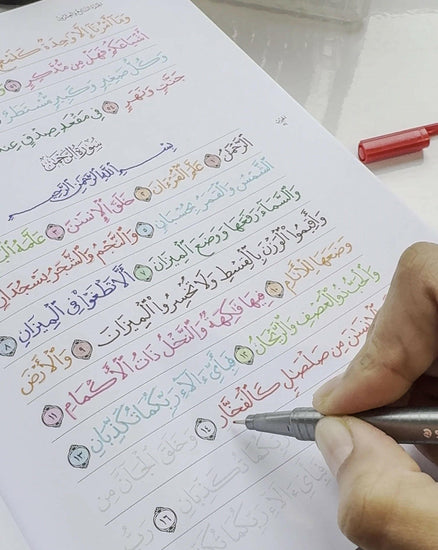 وَمَآ أَمْرُنَآ إِلَّا وَٰحِدَةٌ كَلَمْحٍۭ
أَشْيَاعَكُمْ فَهَلْ مِن مُّدَّكِرٍ
وَكُلُّ صَغِيرٍ وَكَبِيرٍ مُّسْتَطَرٌ
جَنَّٰتٍ وَنَهَرٍ ٥٤ فِى مَقْعَدِ صِدْقٍ عِندَ
سُورَةُ الرَّحْمَٰن
بِسْمِ ٱللَّهِ ٱلرَّحْمَٰنِ ٱلرَّحِيمِ
ٱلرَّحْمَٰنُ ١ عَلَّمَ ٱلْقُرْءَانَ ٢ خَلَقَ ٱلْإِنسَٰنَ ٣ عَلَّمَهُ
ٱلشَّمْسُ وَٱلْقَمَرُ بِحُسْبَانٍ ٥ وَٱلنَّجْمُ وَٱلشَّجَرُ يَسْجُدَانِ
وَٱلسَّمَآءَ رَفَعَهَا وَوَضَعَ ٱلْمِيزَانَ ٧ أَلَّا تَطْغَوْا۟ فِى ٱلْمِيزَانِ ٨
وَأَقِيمُوا۟ ٱلْوَزْنَ بِٱلْقِسْطِ وَلَا تُخْسِرُوا۟ ٱلْمِيزَانَ ٩ وَٱلْأَرْضَ
وَضَعَهَا لِلْأَنَامِ ١٠ فِيهَا فَٰكِهَةٌ وَٱلنَّخْلُ ذَاتُ ٱلْأَكْمَامِ ١١
وَٱلْحَبُّ ذُو ٱلْعَصْفِ وَٱلرَّيْحَانُ ١٢ فَبِأَىِّ ءَالَآءِ رَبِّكُمَا تُكَذِّبَانِ ١٣
ٱلْإِنسَٰنَ مِن صَلْصَٰلٍ كَٱلْفَخَّارِ ١٤ وَخَلَقَ ٱلْجَآنَّ مِن
رَبِّكُمَا تُكَذِّبَانِ ١٦ رَبُّ
فَبِأَىِّ ءَالَآءِ رَبِّكُمَا